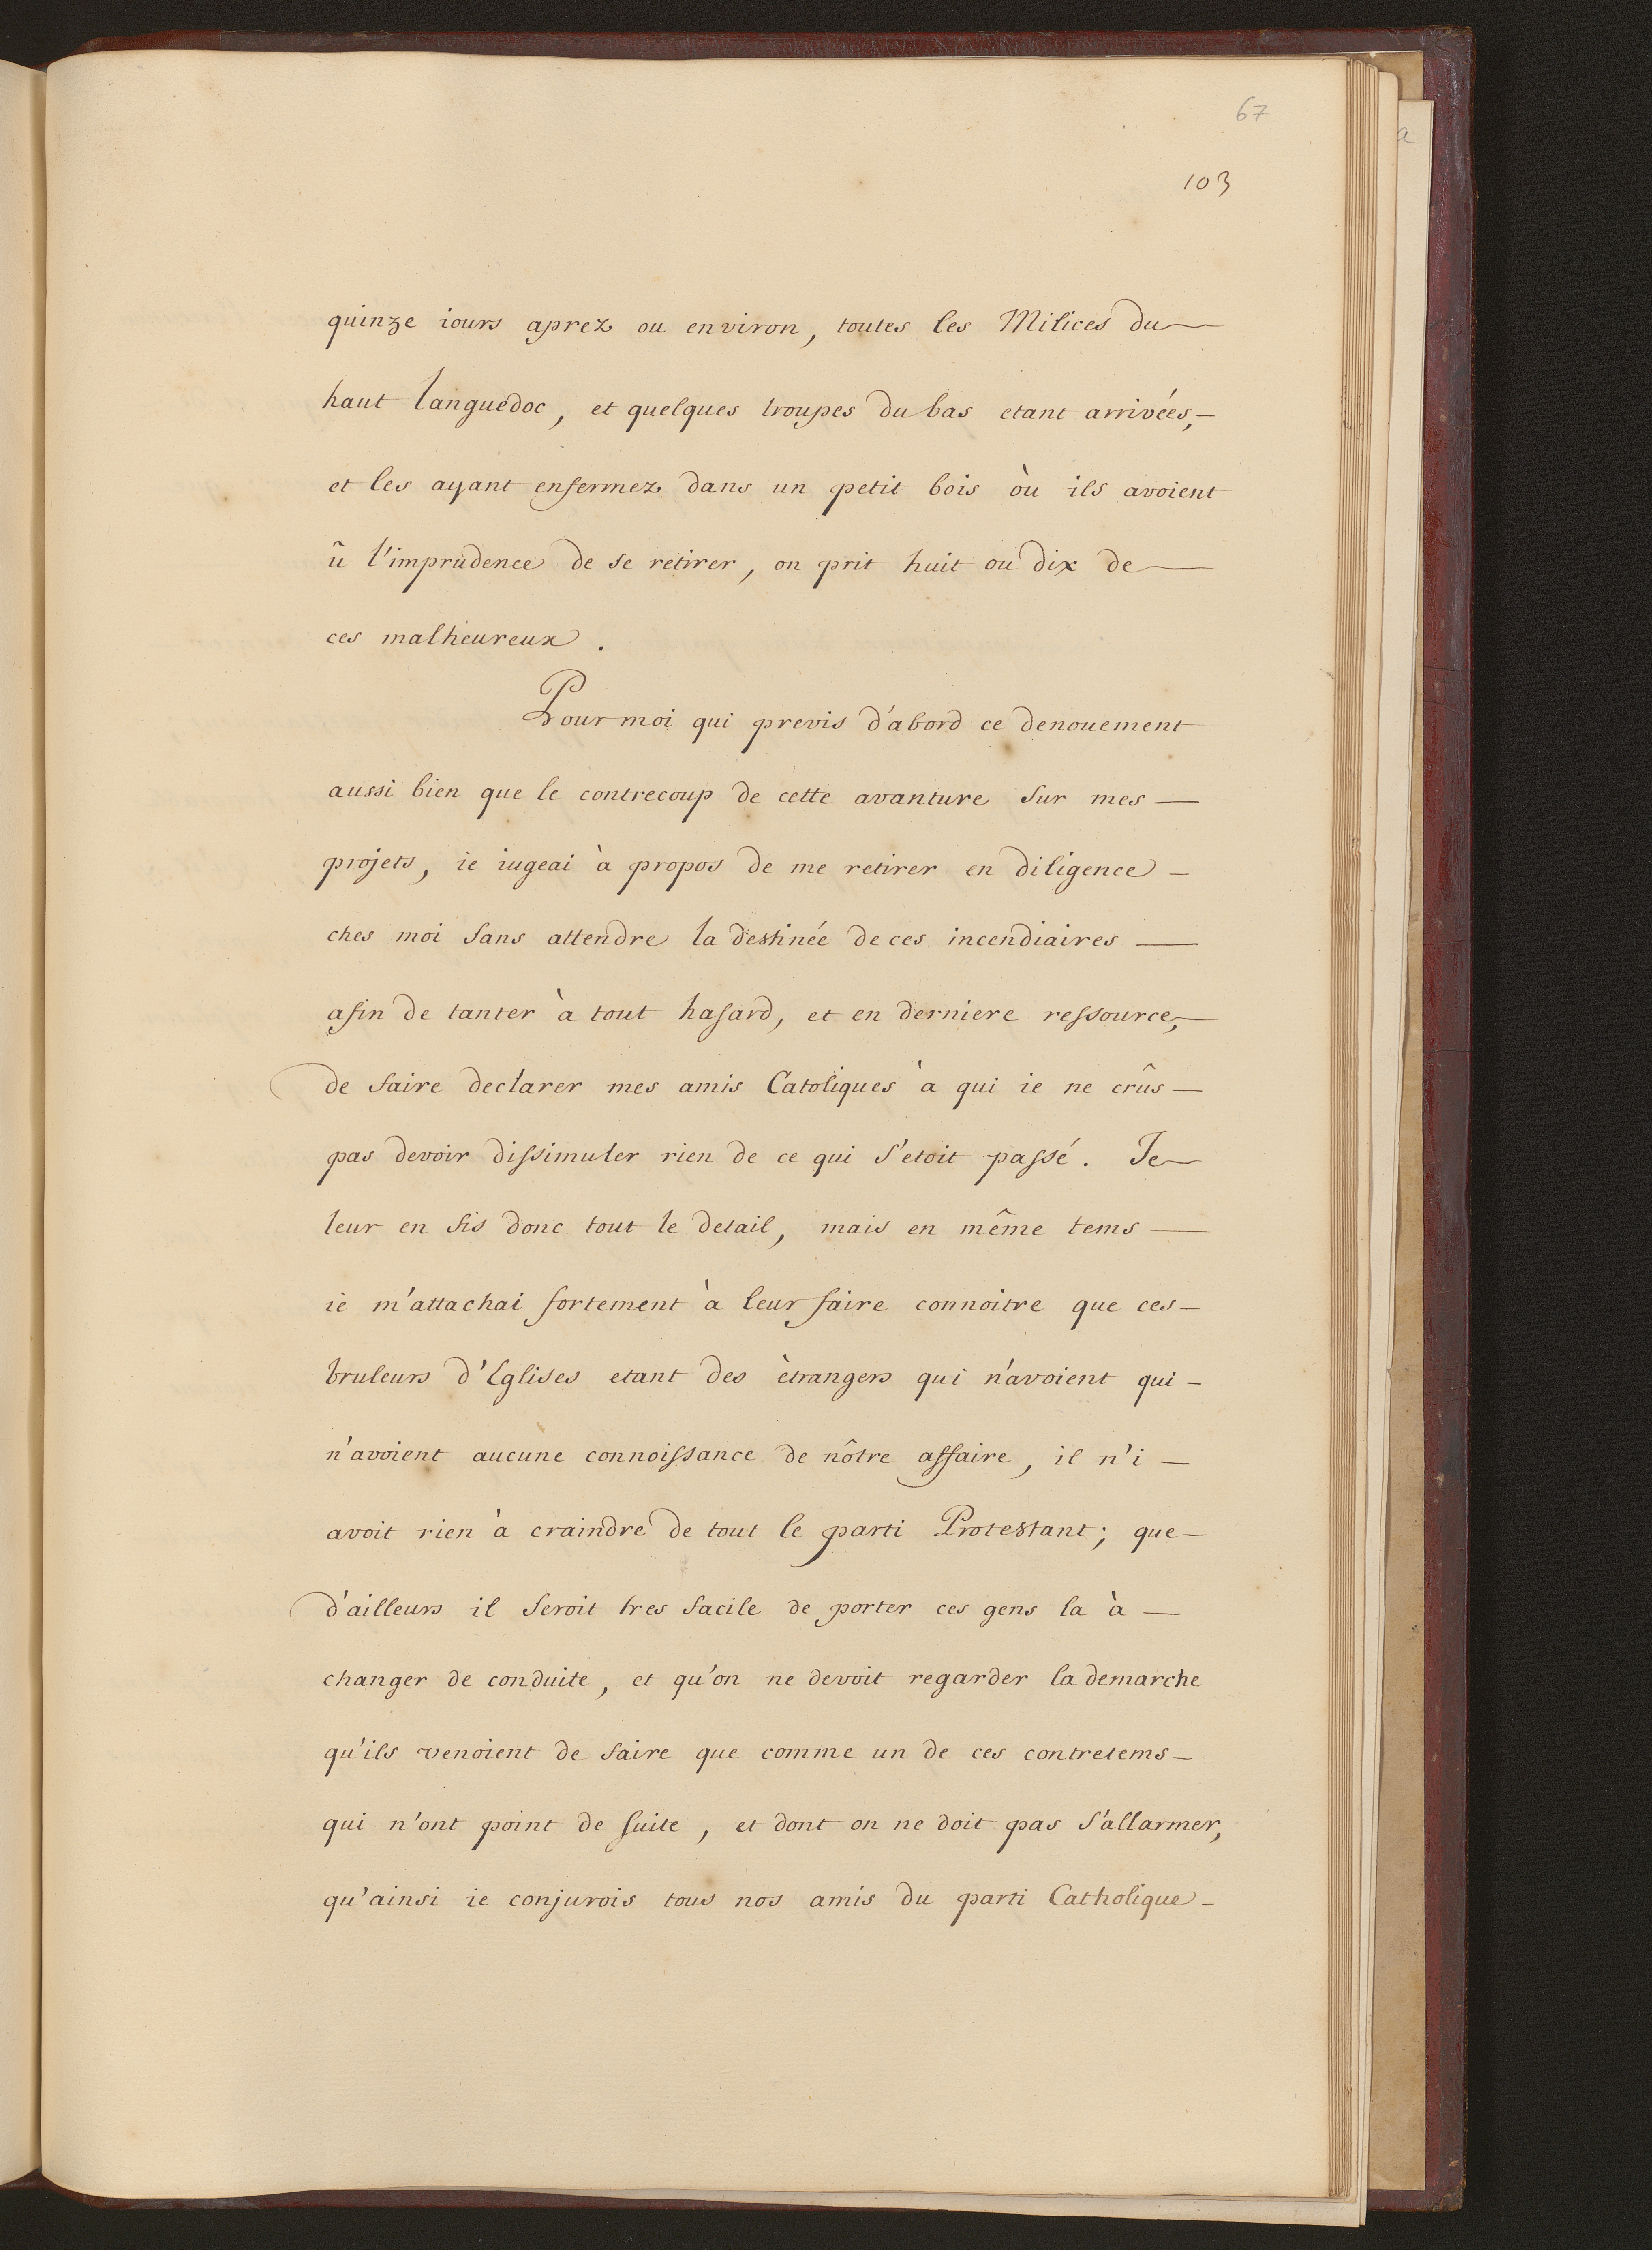 67
103
quinze iours aprez ou environ, toutes les Milices du
haut Languedoc, et quelques troupes du bas etant arrivées,
et les ayant enfermez dans un petit bois òu ils avoient
ũ l'imprudence de se retirer, on prit huit ou dix de
ces malheureux.
Pour moi qui previs d'abord ce denouement
aussi bien que le contrecoup de cette avanture sur mes
projets, ie iugeai à propos de me retirer en diligence
ches moi sans attendre la destinée de ces incendiaires
afin de tanter à tout hasard, et en derniere ressource,
de faire declarer mes amis Catoliques à qui ie ne crûs
pas devoir dissimuler rien de ce qui s'etoit passé. Je
leur en fis donc tout le detail, mais en même tems
ie m'attachai fortement à leur faire connoitre que ces
bruleurs d'Eglises etant des ètrangers qui n'avoient qui
n'avoient aucune connoissance de nôtre affaire, il n'i
avoit rien à craindre de tout le parti Protestant; que
d'ailleurs il seroit tres facile de porter ces gens la à
changer de conduite, et qu'on ne devoit regarder la demarche
qu'ils venoient de faire que comme un de ces contretems
qui n'ont point de suite, et dont on ne doit pas s'allarmer,
qu'ainsi ie conjurois tous nos amis du parti Catholique